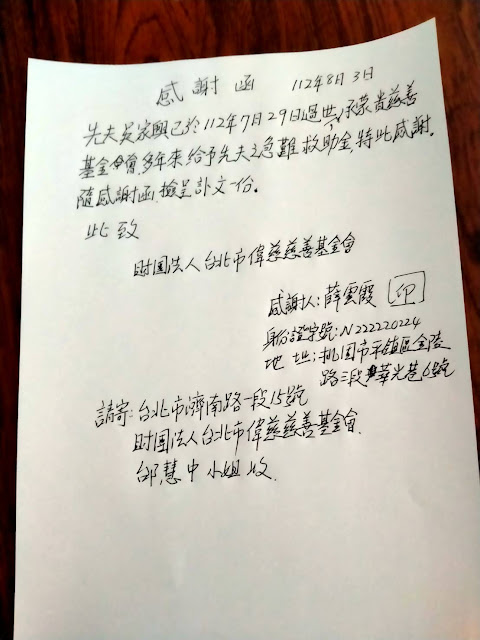 感謝函 112年8月3日
先夫吳家興已於112年7月29日過世,承蒙貴慈善
基金會,多年來給予先夫之急難救助金,特此感謝.
隨感謝函,檢呈訃文一份。
此致
財團法人台北市偉慈慈善基金會
感謝人:薛雲霞 印
身份證字號:N222220224
地址:桃園市平鎮區金陵
路三段華光巷6號
請寄:台北市濟南路一段15號
財團法人台北市偉慈慈善基金會.
邰慧中小姐收.